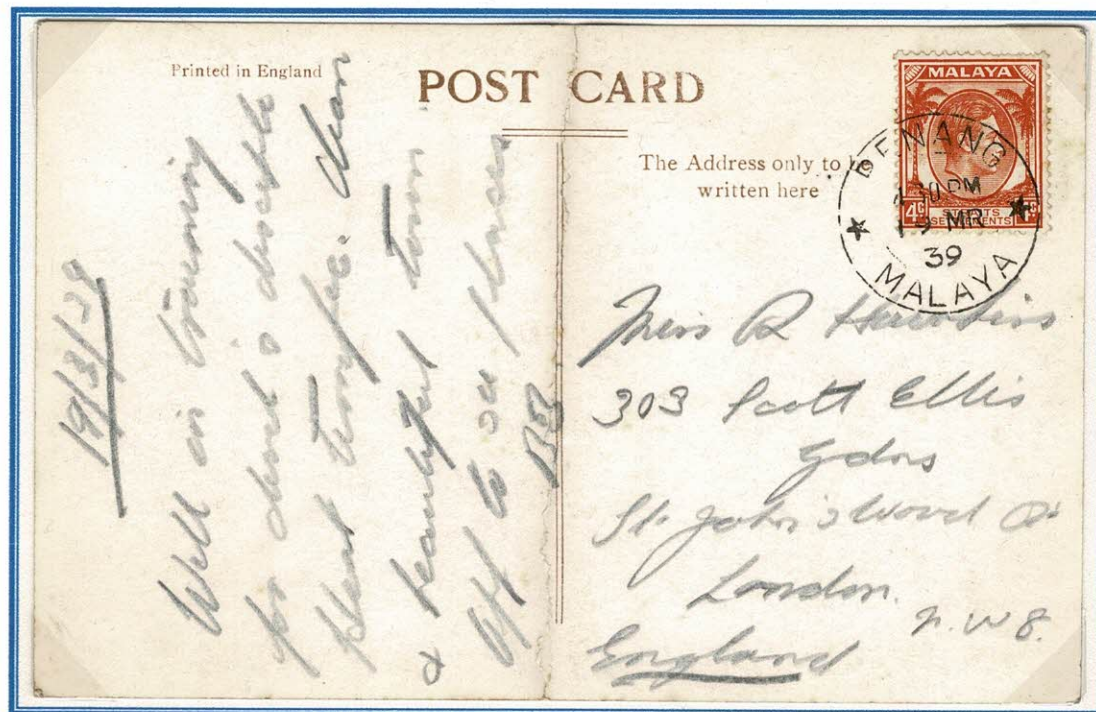 Printed in England
POST CARD
The Address only to be
written here
MALAYA
4c
STRAITS
SETTLEMENTS
PENANG
4 30 PM
19 MR
39
MALAYA
19/3/39
Well in training
for devil's
heat terrific. Clean
& beautiful town
Off to see places
Miss R
303 Scott Ellis
Gdns
St. John's Wood Rd
London.
N.W 8.
England